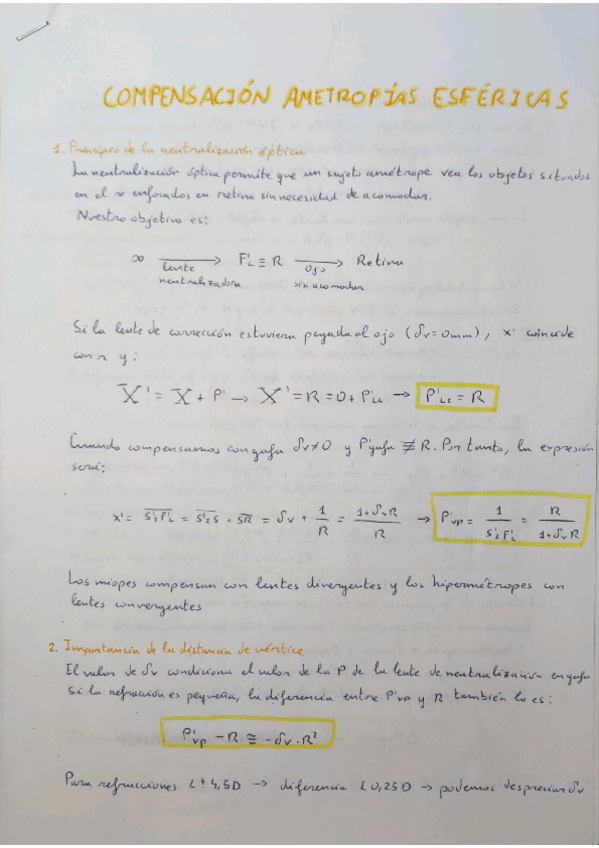 COMPENSACIÓN AMETROPÍAS ESFÉRICAS
1. Principios de la neutralización óptica
La neutralización óptica permite que un sujeto amétrope vea los objetos situados
en el ∞ enfocados en retina sin necesidad de acomodar.
Nuestro objetivo es:
∞ ⟶ F'L ≡ R ⟶ Retina
lente ojo
neutralizadora sin acomodar
Si la lente de corrección estuviera pegada al ojo (δv = 0mm), x' coincide
con r y:
X̄' = X̄ + P' → X̄' = R = 0 + P'Lc → P'Lc = R
Cuando compensamos con gafa δv ≠ 0 y P'gafa ≢ R. Por tanto, la expresión
será:
x' = S'₂F'L = S'₂S + SR = δv + 1/R = (1+δvR)/R → P'vp = 1/S'₂F'L = R/(1+δvR)
Los miopes compensan con lentes divergentes y los hipermétropes con
lentes convergentes
2. Importancia de la distancia de vértice
El valor de δv condiciona el valor de la P de la lente de neutralización en gafa
Si la refracción es pequeña, la diferencia entre P'vp y R también lo es:
P'vp − R ≅ −δv · R²
Para refracciones < ± 4,5D → diferencia < 0,25D → podemos despreciar δv